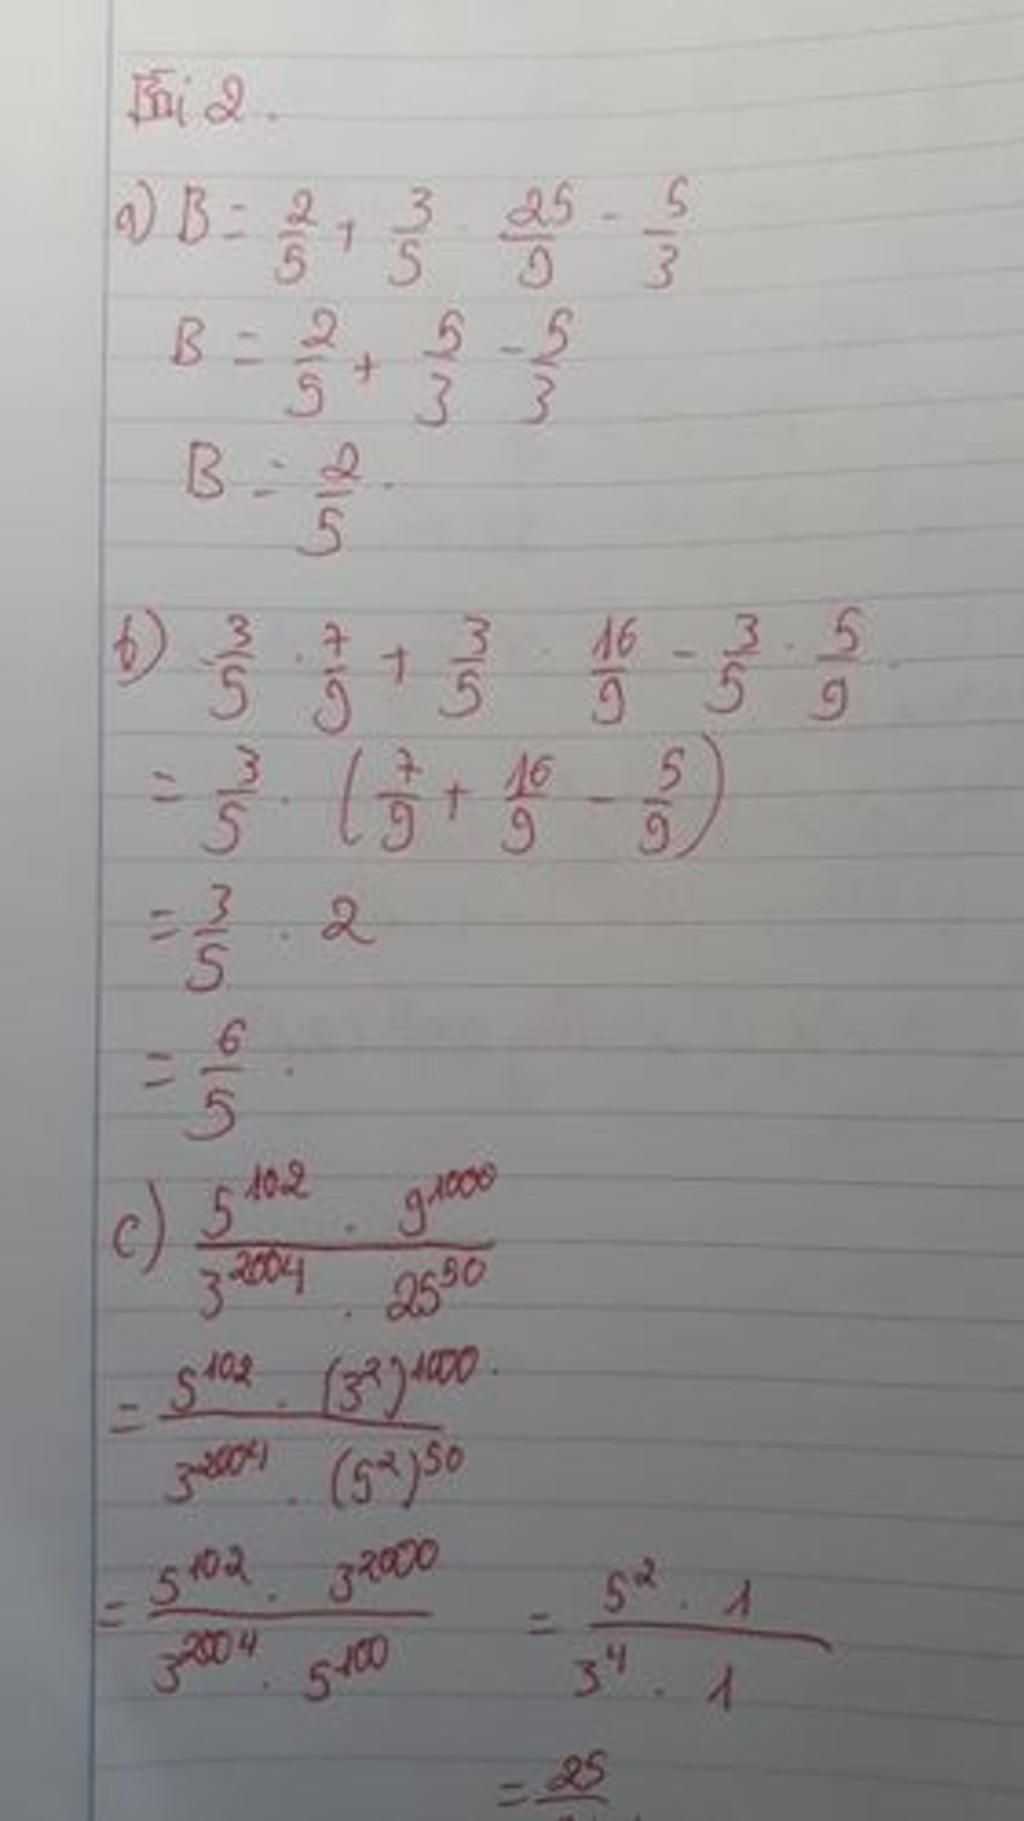 Bài 2.
a) B = 2/5 + 3/5 . 25/9 - 5/3
B = 2/5 + 5/3 - 5/3
B = 2/5.
b) 3/5 . 7/9 + 3/5 . 16/9 - 3/5 . 5/9.
= 3/5 . (7/9 + 16/9 - 5/9)
= 3/5 . 2
= 6/5.
c) 5^102 . 9^1000 / 3^2004 . 25^50
= 5^102 . (3^2)^1000 / 3^2004 . (5^2)^50
= 5^102 . 3^2000 / 3^2004 . 5^100 = 5^2 . 1 / 3^4 . 1
= 25/